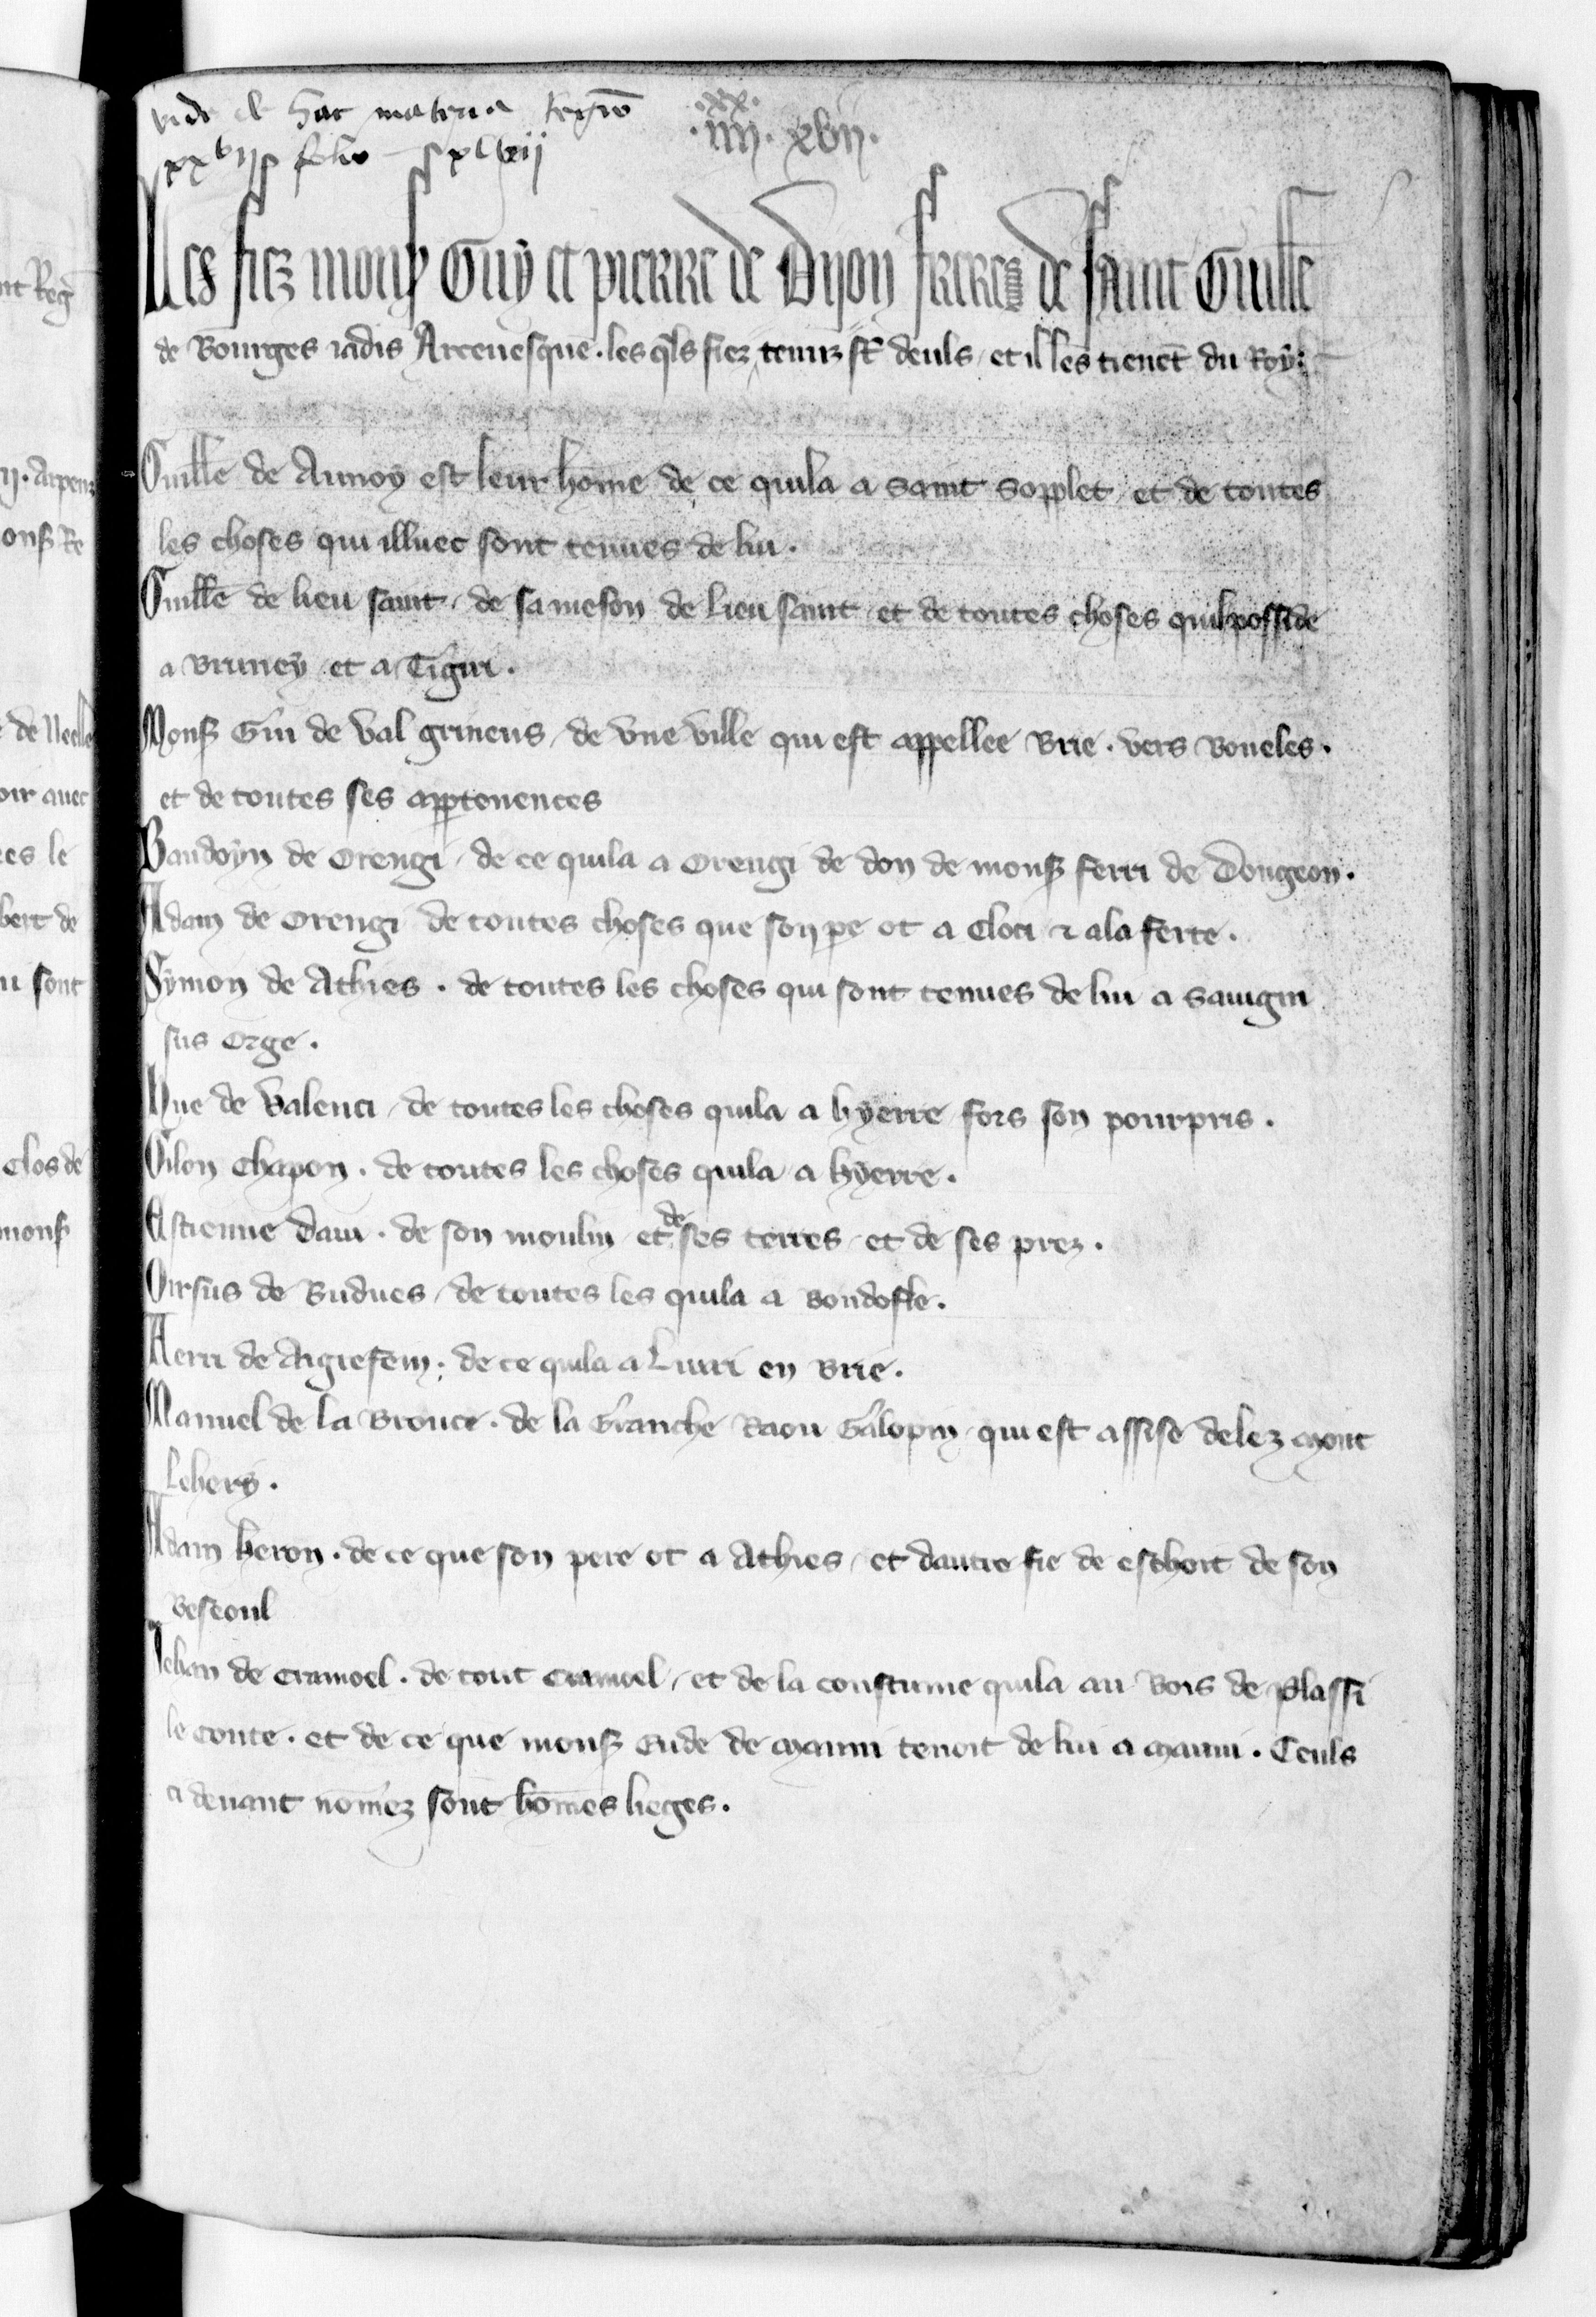 vide de hac materia
folio
.iiii.xx xvii.
Les fiez monß Guy et pierre de Dyon freres de saint Guille
de Bourges iadis Arceuesque . les qls fiez tenuz st deuls , et il les tienēt du Roy
Guille de Aunoy est leur home de ce quila a saint Sopplet et de toutes
les choses qui illuec sont tenues de lui .
Guille de lieu saint , de sa meson de Lieu saint et de toutes choses quil posside
a Brunoy et a Tigni .
Monß Gui de val grineus , de vne ville qui est appellee Brie . vers Boueles .
et de toutes ses appertenences
Baudoyn de Orengi , de ce quila a Orengi de don de monß ferri de Dongeon .
Adam de Orengi de toutes choses que son pe ot a Cloci ⁊ a la ferte .
Symon de Athies . de toutes les choses qui sont tenues de lui a Sauigni
sus Orge .
Hue de Valenci , de toutes les choses quila a hyerre fors son pourpris .
Gilon Chapon . de toutes les choses quila a hyerre .
Estienne Daui . de son moulin et de ses terres , et de ses prez .
de Budues , de toutes les quila a Bondofle .
de Aigrefein . de ce quila a Liuri en Brie .
Manuel de la Bronce . de la Granche Raou Galopin , qui est assise delez mont
Lehery .
Adam heron . de ce que son pere ot a Athies , et dautre fie de eschoit de son
Beseoul
Jehan de Cramoel . de tout Cramoel , et de la coustume quila au Bois de Plassi
le conte . et de ce que monß Eude de manni tenoit de lui a manni . Ceuls
ci deuant nomez sont homes lieges .